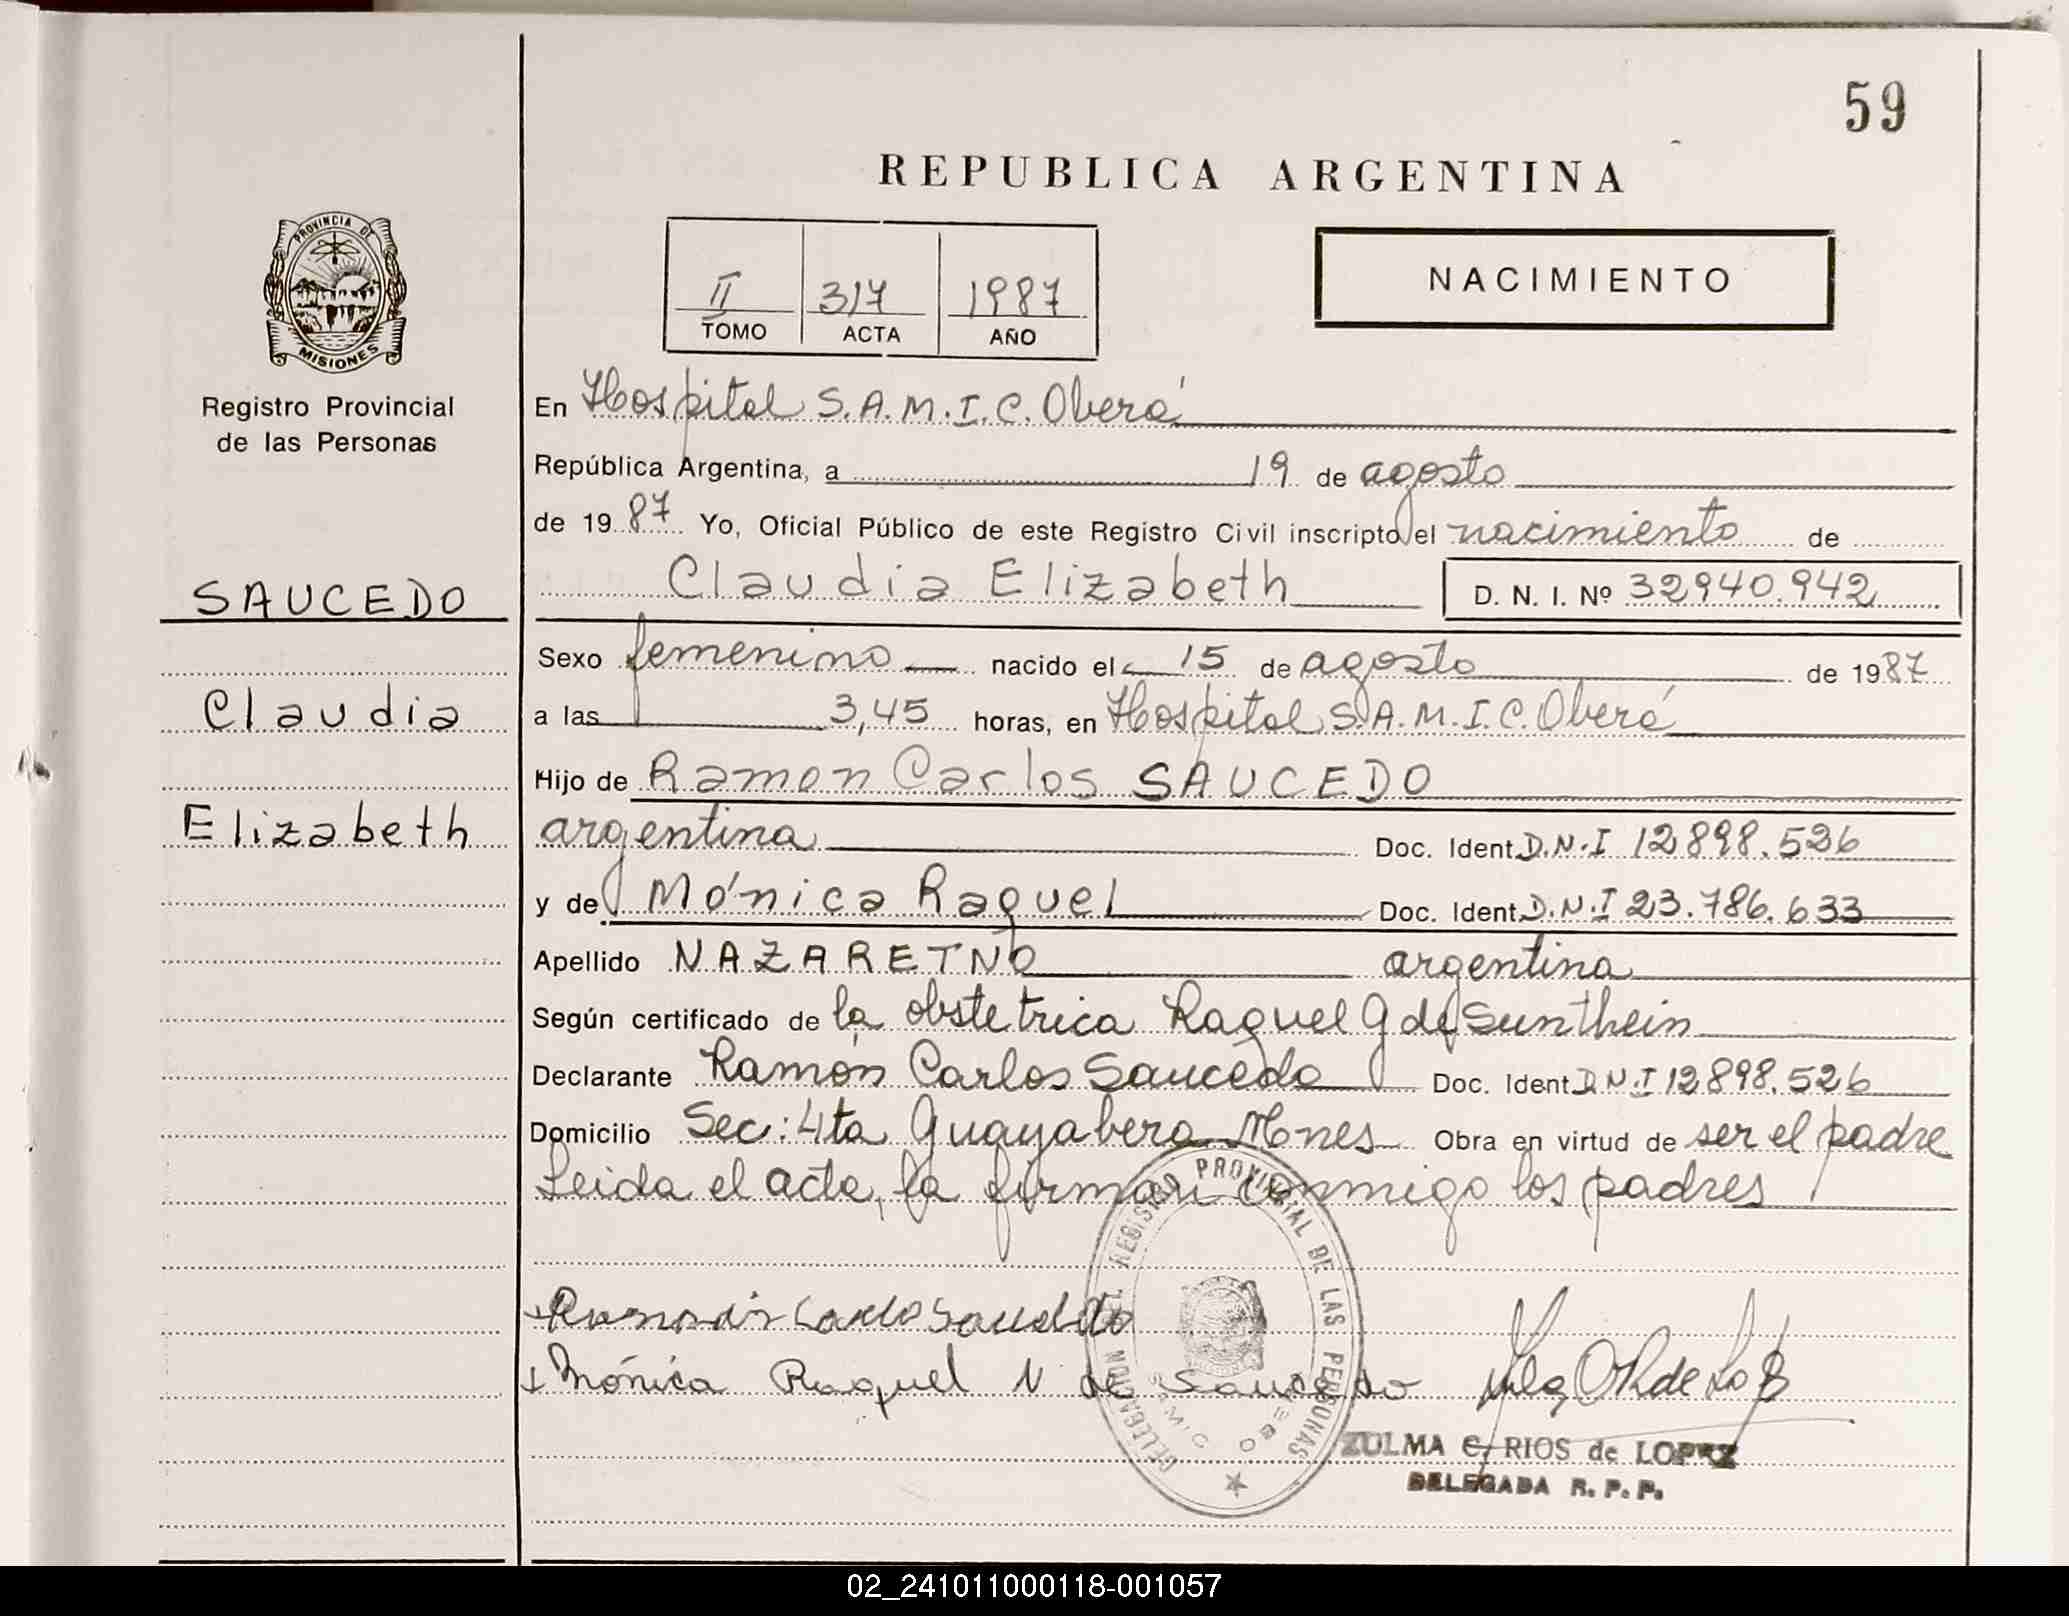 59
REPUBLICA ARGENTINA
PROVINCIA DE
MISIONES
Registro Provincial
de las Personas
II 317 1987
TOMO ACTA AÑO
NACIMIENTO
En Hospital S.A.M.I.C. Oberá
República Argentina, a 19 de agosto
de 1987 Yo, Oficial Público de este Registro Civil inscripto el nacimiento de
Claudia Elizabeth D. N. I. Nº 32940.942
SAUCEDO
Claudia
Elizabeth
Sexo femenino nacido el 15 de agosto de 1987
a las 3,45 horas, en Hospital S.A.M.I.C. Oberá
Hijo de Ramon Carlos SAUCEDO
argentina Doc. Ident. D.N.I 12898.526
y de Mónica Raquel Doc. Ident. D.N.I 23.786.633
Apellido NAZARETNO argentina
Según certificado de la obstetrica Raquel G de Sunthein
Declarante Ramón Carlos Saucedo Doc. Ident D.N.I 12898.526
Domicilio Sec: 4ta Guayabera Mnes Obra en virtud de ser el padre
Leida el acta, la firman conmigo los padres
Mónica Raquel N de Saucedo
DELEGACION REGISTRO PROVINCIAL DE LAS PERSONAS
SAMIC OBERA
ZULMA RIOS de LOPEZ
DELEGADA R. P. P.
02_241011000118-001057